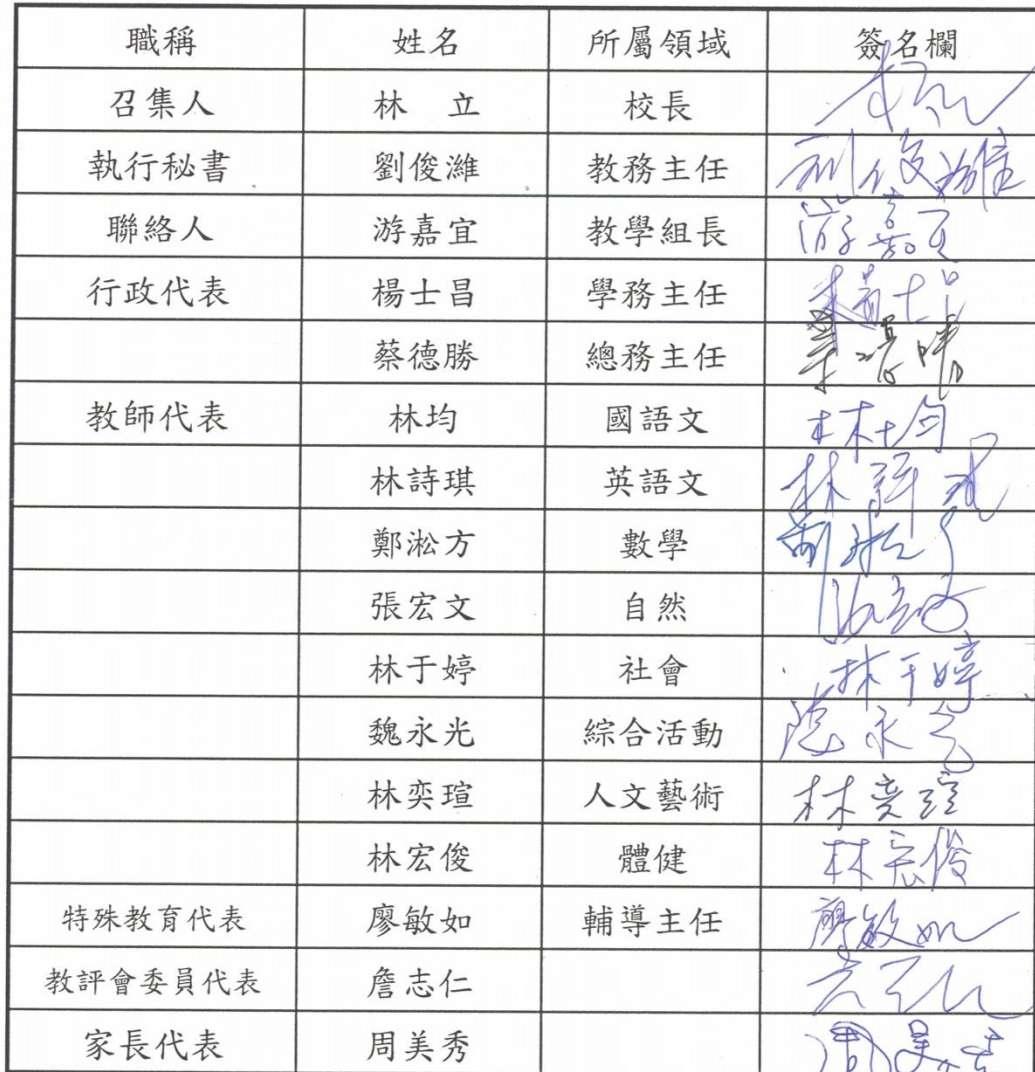 職稱 姓名 所屬領域 簽名欄
召集人 林 立 校長
執行秘書 劉俊濰 教務主任 劉俊濰
聯絡人 游嘉宜 教學組長 游嘉宜
行政代表 楊士昌 學務主任 楊士昌
蔡德勝 總務主任
教師代表 林均 國語文 林均
林詩琪 英語文 林詩琪
鄭淞方 數學
張宏文 自然
林于婷 社會 林于婷
魏永光 綜合活動 魏永光
林奕瑄 人文藝術 林奕瑄
林宏俊 體健 林宏俊
特殊教育代表 廖敏如 輔導主任 廖敏如
教評會委員代表 詹志仁
家長代表 周美秀 周美秀